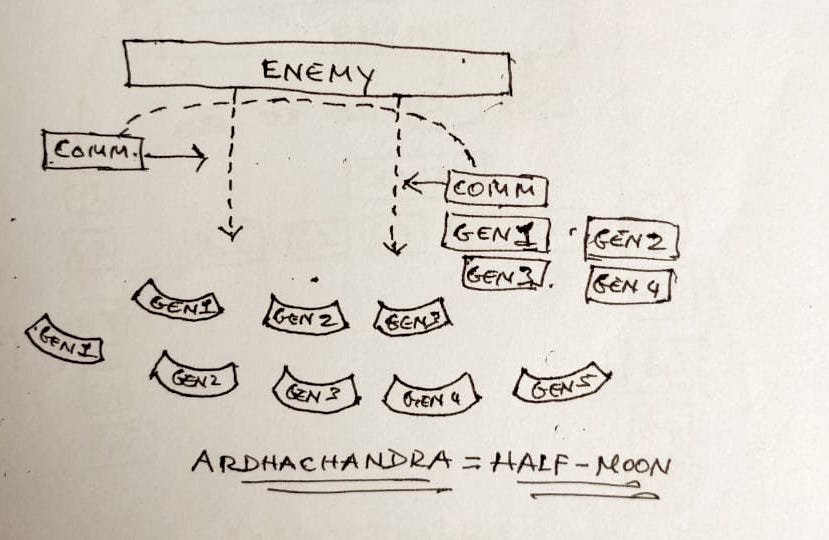 ENEMY
COMM.
COMM
GEN1 GEN2
GEN3. GEN4
GEN1 GEN2 GEN3
GEN1
GEN2 GEN3 GEN4 GEN5
ARDHACHANDRA = HALF-MOON